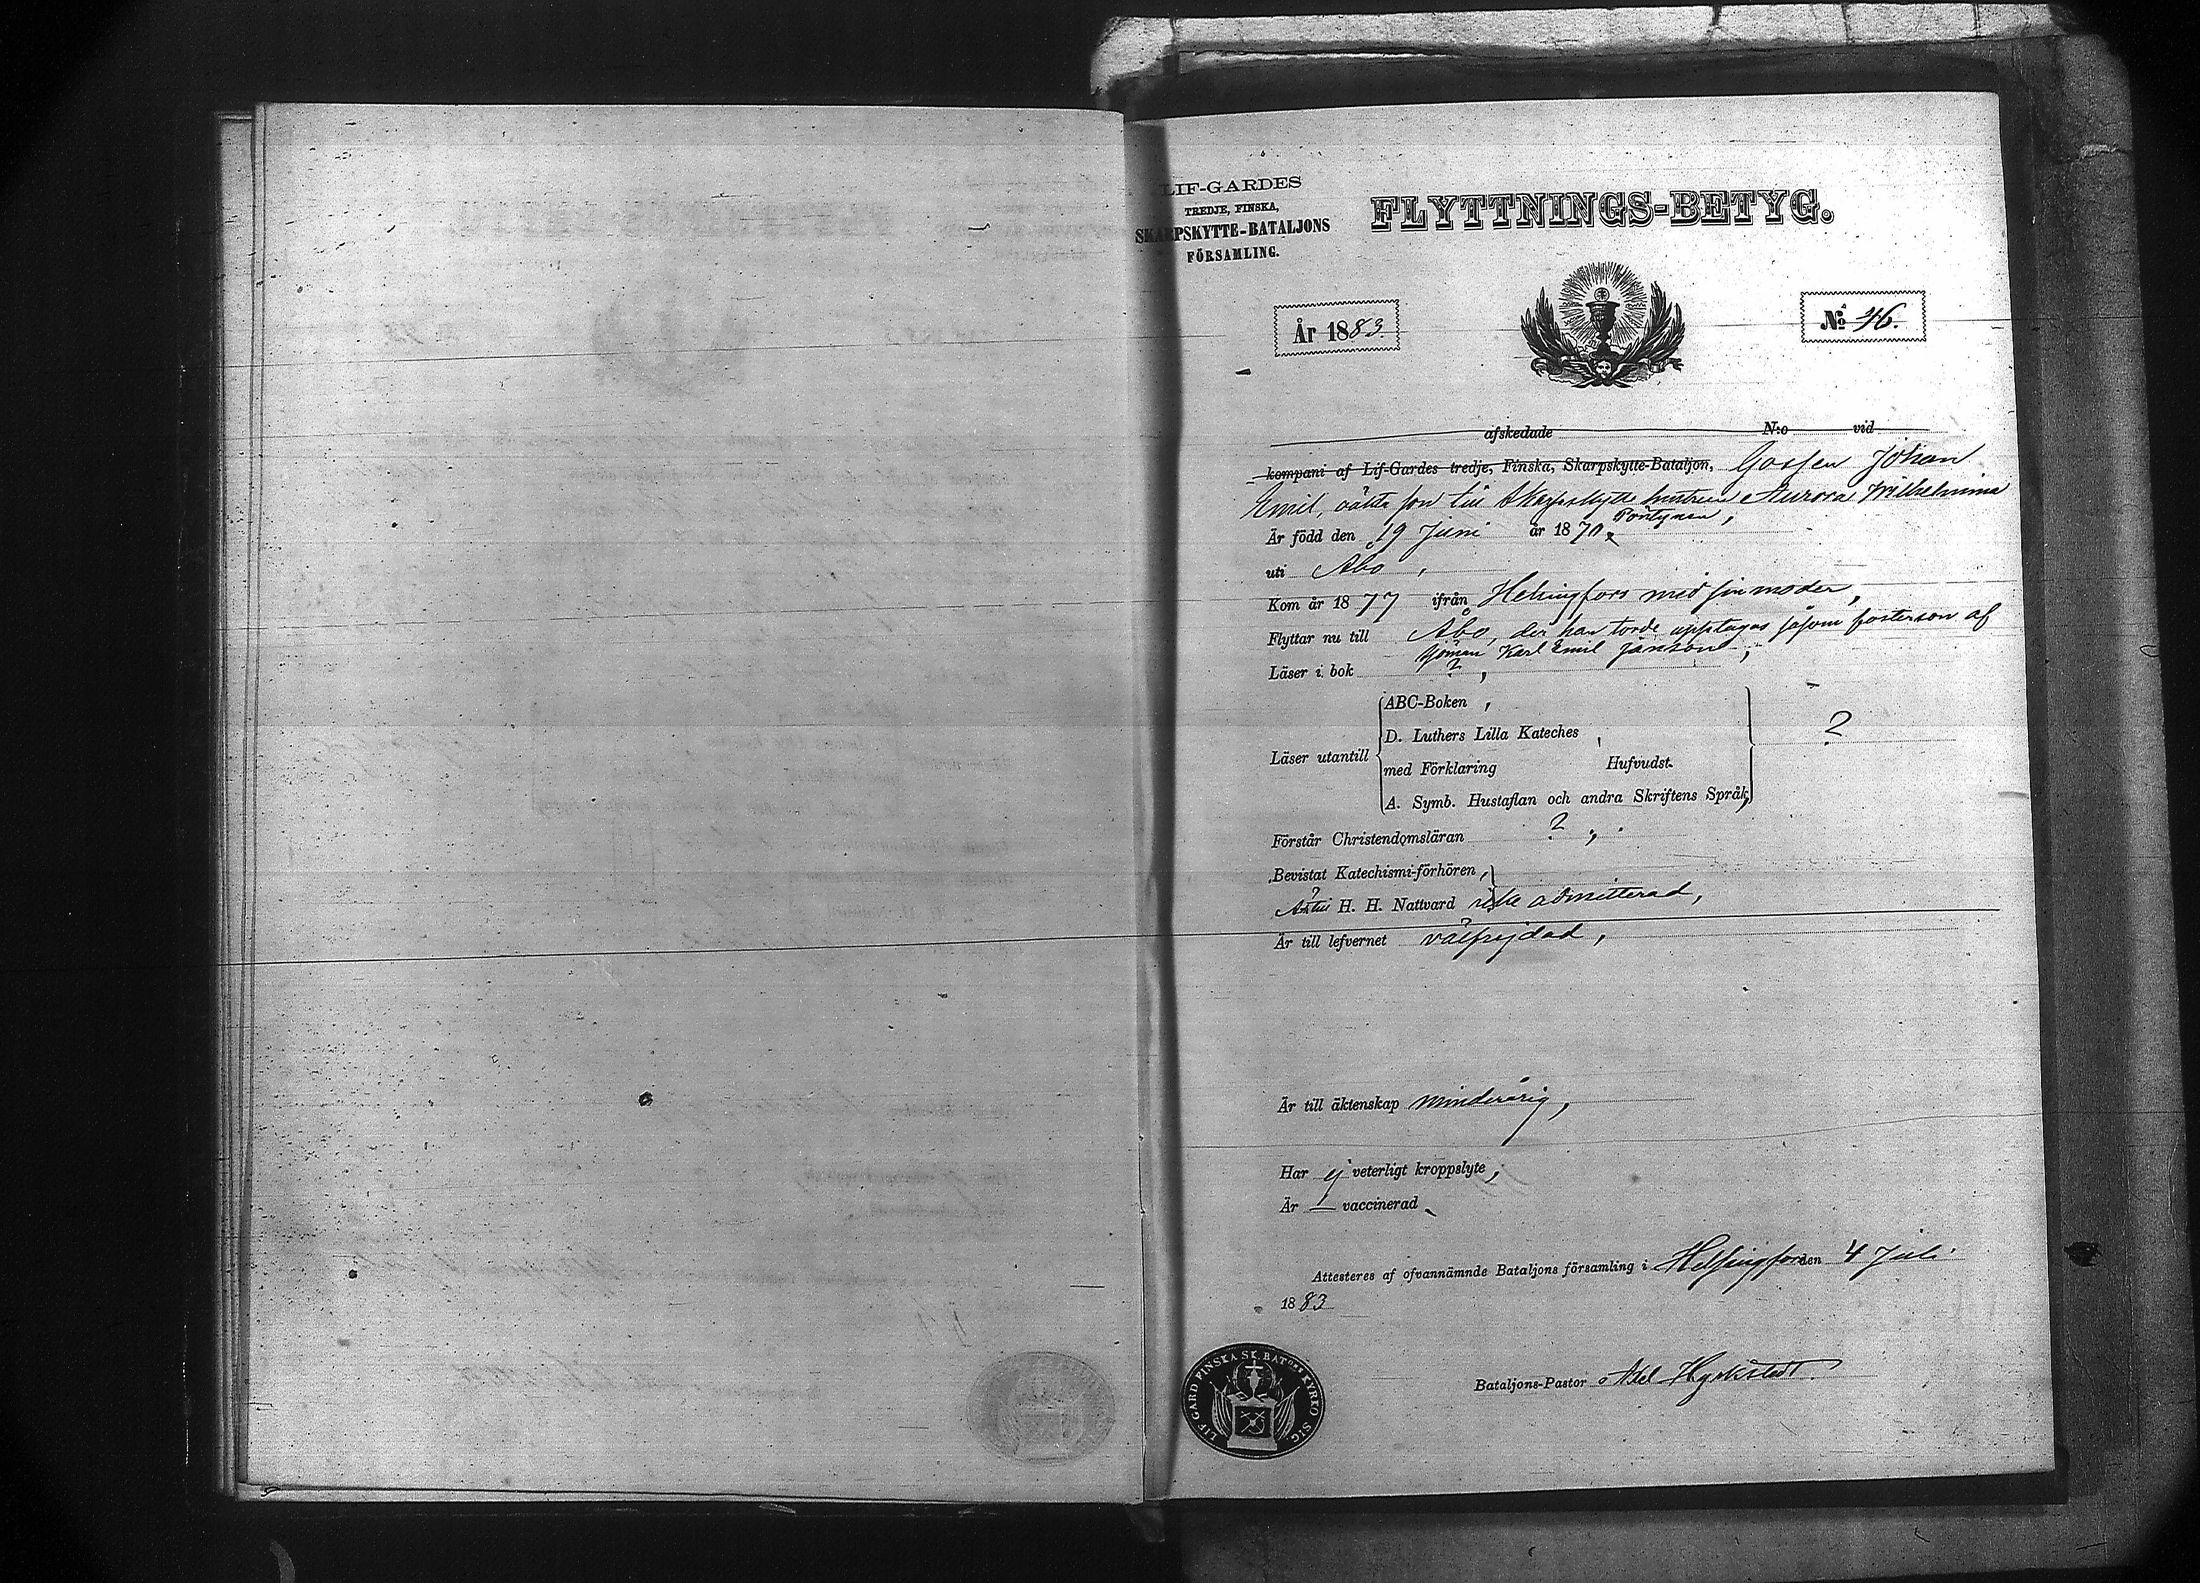 LIF-GARDES
TREDJE, FINSKA,
SKARPSKYTTE-BATALJONS
FÖRSAMLING.
FLYTTNINGS-BETYG.
År 1883.
№ 46.
afskedade N:o vid
kompani af Lif-Gardes tredje, Finska, Skarpskytte-Bataljon, Gossen Johan
Emil, oäkta son till Skarpskytte hustrun Aurora Wilhelmina
Pontynen,
Är född den 19 Juni år 1870,
uti Åbo,
Kom år 1877 ifrån Helsingfors med sin moder,
Flyttar nu till Åbo, der han torde upptagas såsom fosterson af
Karl Emil Janson,
Läser i bok ?,
Läser utantill
ABC-Boken,
D. Luthers Lilla Kateches,
med Förklaring Hufvudst.
A. Symb. Hustaflan och andra Skriftens Språk,
?
Förstår Christendomsläran ?,
Bevistat Katechismi-förhören,
H. H. Nattvard icke admitterad,
Är till lefvernet välfrejdad,
Är till äktenskap minderårig,
Har ej veterligt kroppslyte,
Är — vaccinerad.
Attesteras af ofvannämnde Bataljons församling i Helsingfors den 4 Juli
1883
Bataljons-Pastor Axel Hyrkstedt.
LIF GARD FINSKA SK. BATONS KYRKO SIG.